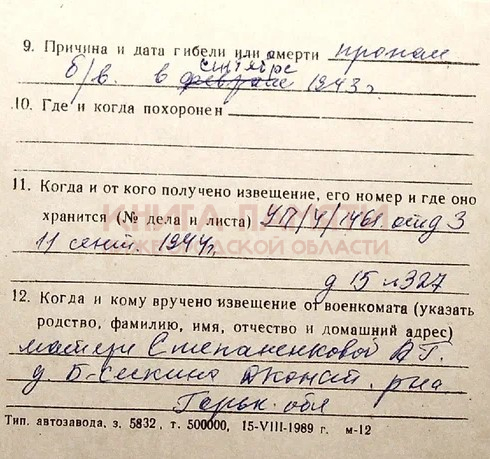 9. Причина и дата гибели или смерти пропал
сентябре
б/в. в феврале 1943 г.
10. Где и когда похоронен
11. Когда и от кого получено извещение, его номер и где оно
хранится (№ дела и листа) УП/4/1461 отд 3
КНИГА ПАМЯТИ
НИЖЕГОРОДСКОЙ ОБЛАСТИ
11 сент. 1944г.
д 15 л 327
12. Когда и кому вручено извещение от военкомата (указать
родство, фамилию, имя, отчество и домашний адрес)
матери Степаненковой В Г.
д. Б-Сескина Дконст. р-на
Горьк. обл
Тип. автозавода, з. 5832, т. 500000, 15-VIII-1989 г. м-12